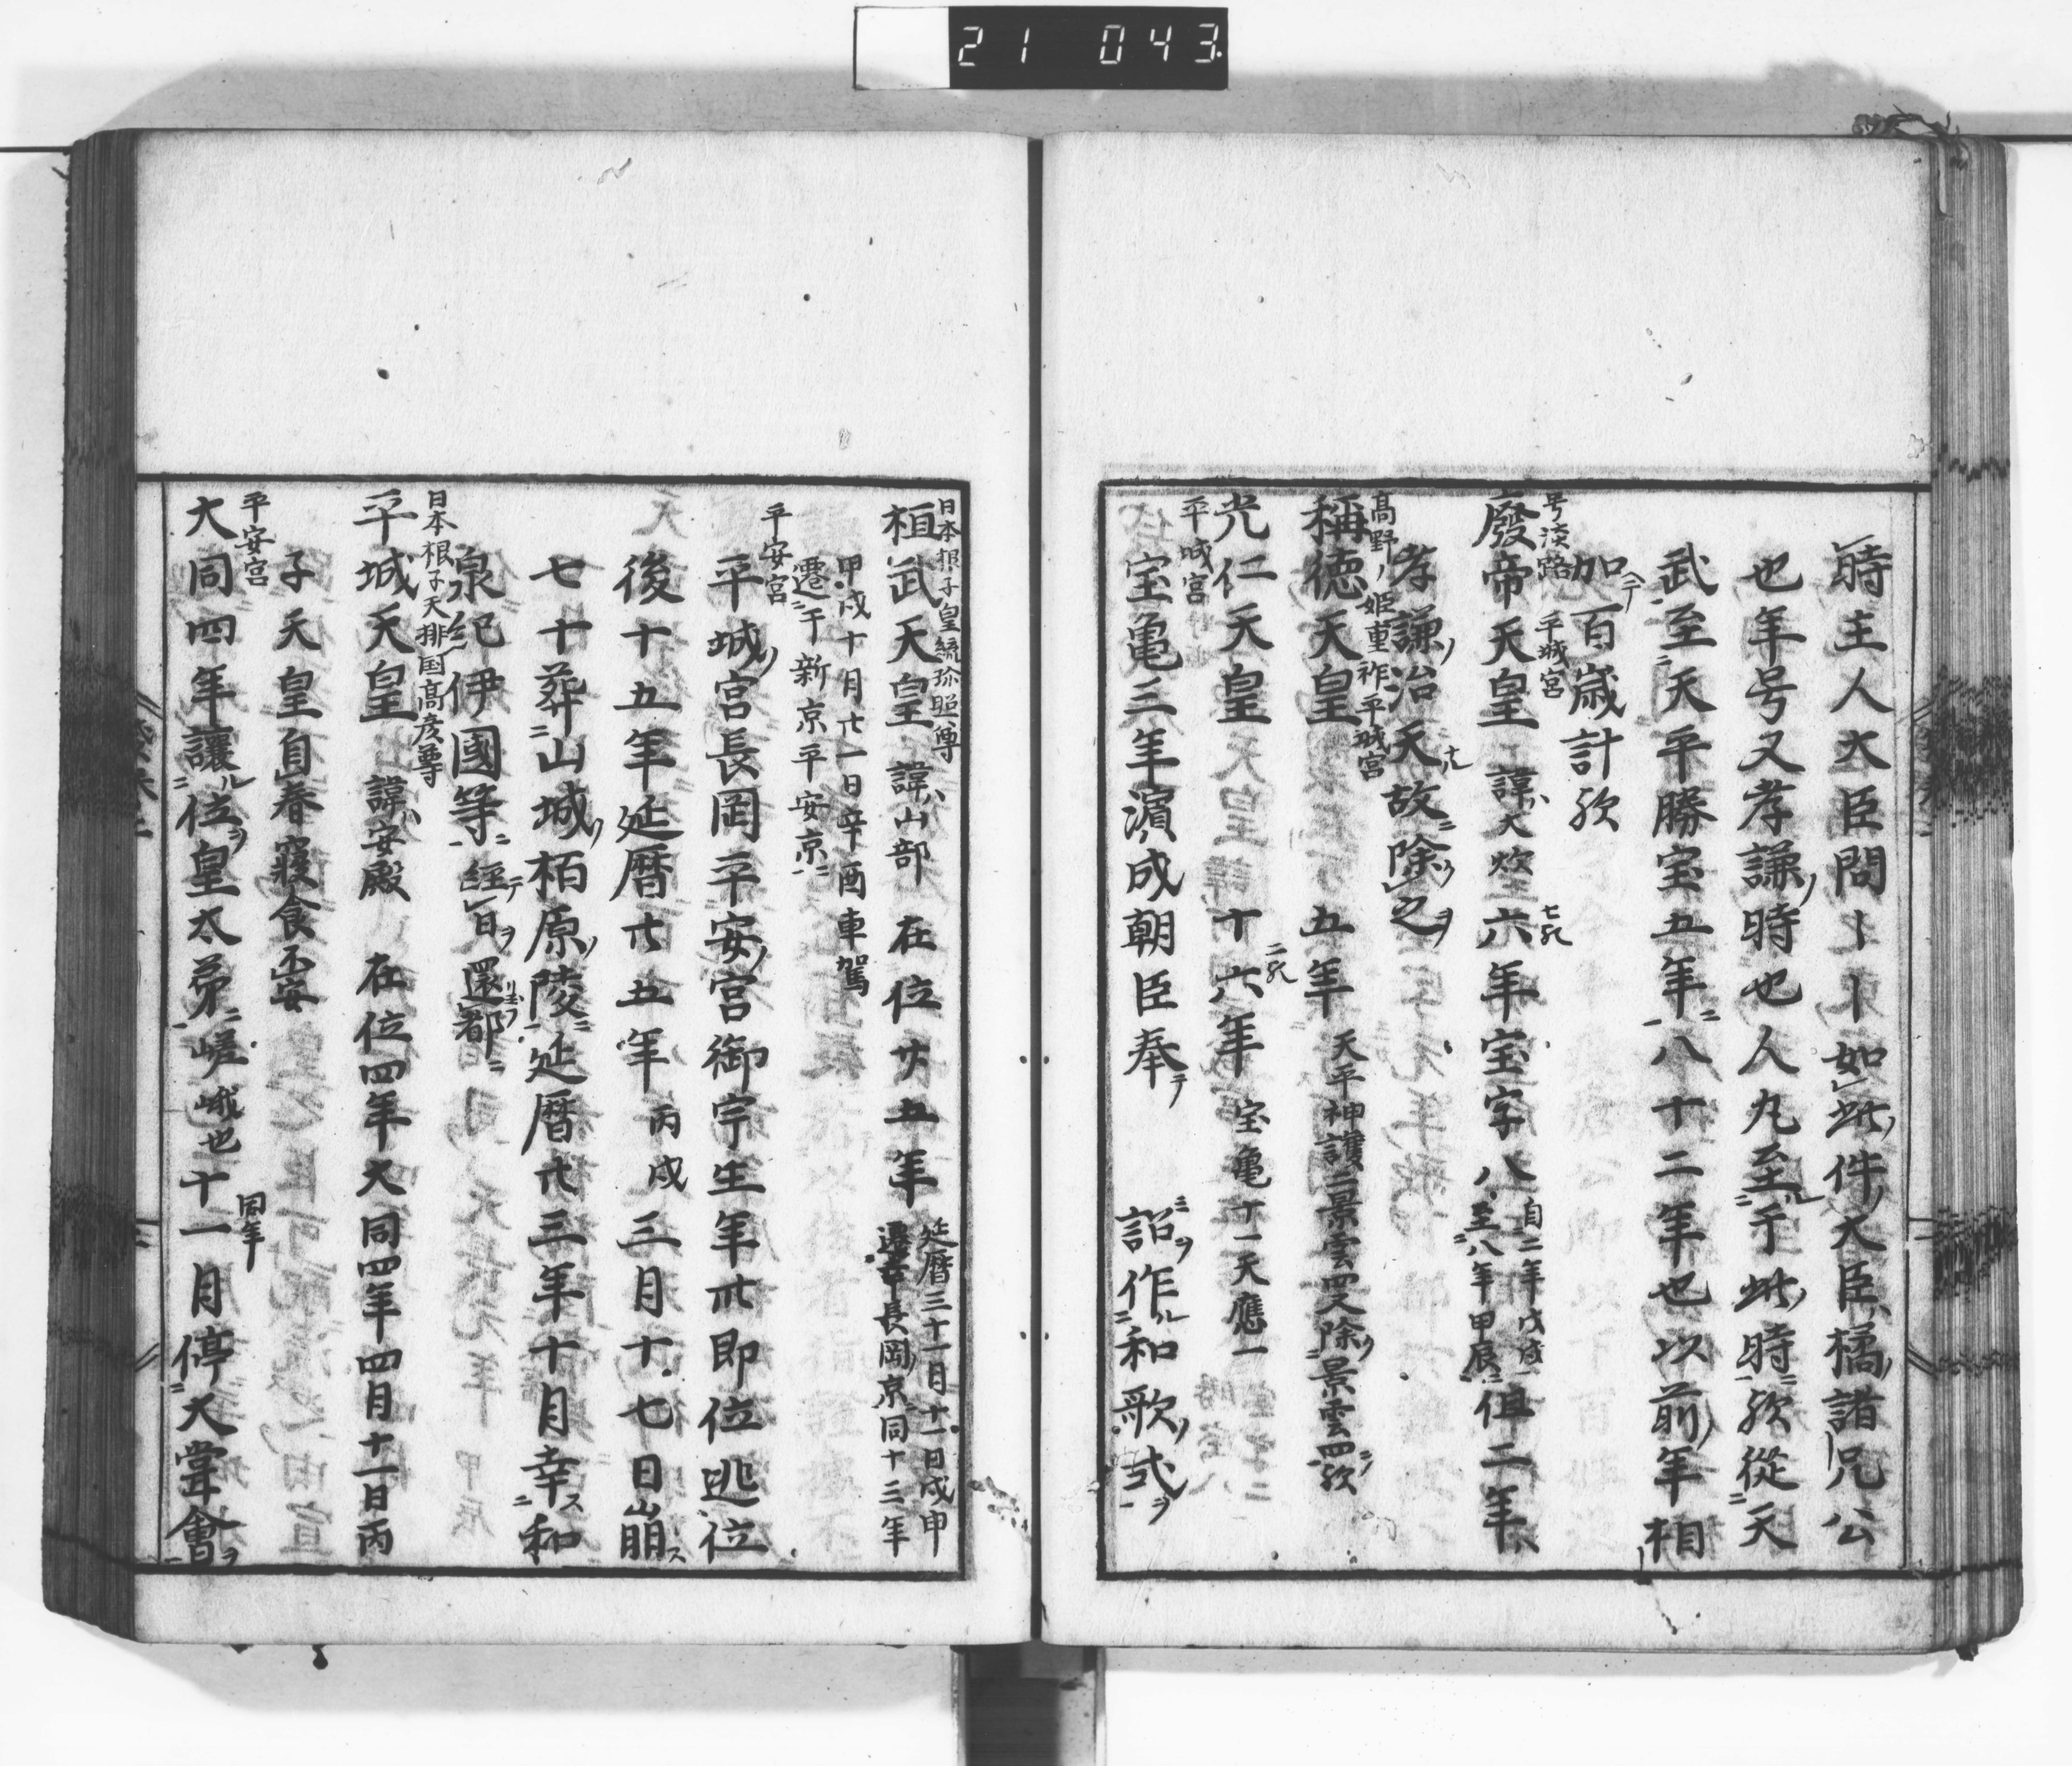 21 043
時主人大臣問〡〡〡如此件大臣橘諸兄公
也年号又孝謙時也人丸至于此時歟從天
武至天平勝宝五年八十二年也以前年相
加百歳計歟
号淡路 平城宮
廢帝天皇 諱大炊 六年宝字八 自二年戊戌至八年甲辰 但二年
七歟
孝謙治天故除之
高野姫重祚平城宮
稱徳天皇 五年 天平神護二景雲四又除景雲四歟
光仁天皇 十六年 宝亀十一天應一
二歟
平城宮
宝亀三年濱成朝臣奉 詔作和歌式
日本根子皇統弥照尊
桓武天皇 諱山部 在位廿五年 延暦三十一月十一日戊申遷幸長岡京同十三年
甲戌十月廿一日辛酉車駕
遷于新京平安京
平安宮
平城宮長岡平安宮御宇生年卅即位逊位
後十五年延暦廿五年丙戌三月十七日崩
七十葬山城栢原陵延暦廿三年十月幸和
泉紀伊國等經日還都
日本根子天排国高彦尊
平城天皇 諱安殿 在位四年大同四年四月十一日丙
子天皇自春寝食不安
平安宮
大同四年讓位皇太弟嵯峨也十一月停大甞會
同年